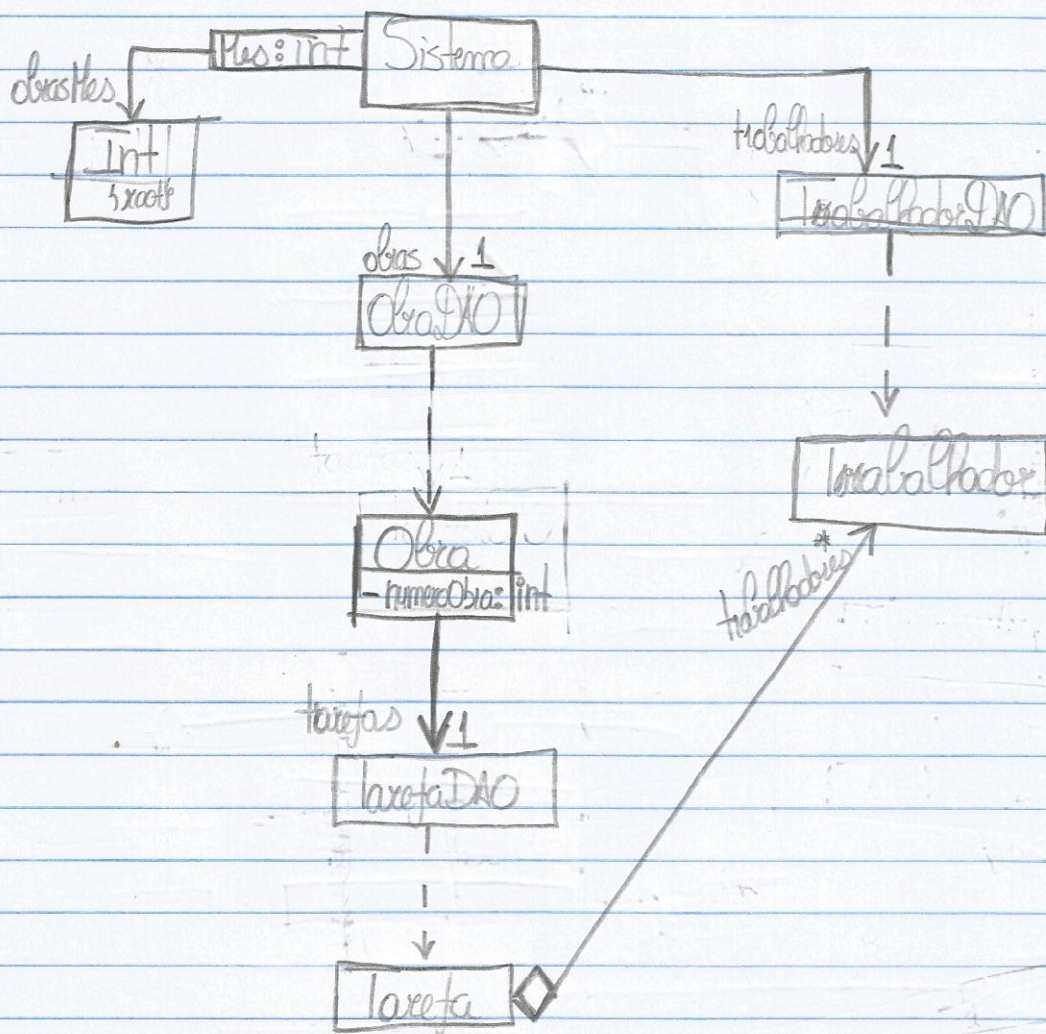 Mes: int
Sistema
obrasMes
Int
trabalhadores
1
TrabalhadorDAO
obras
1
ObraDAO
Trabalhador
Obra
- numeroObra: int
trabalhadores
*
tarefas
1
TarefaDAO
Tarefa